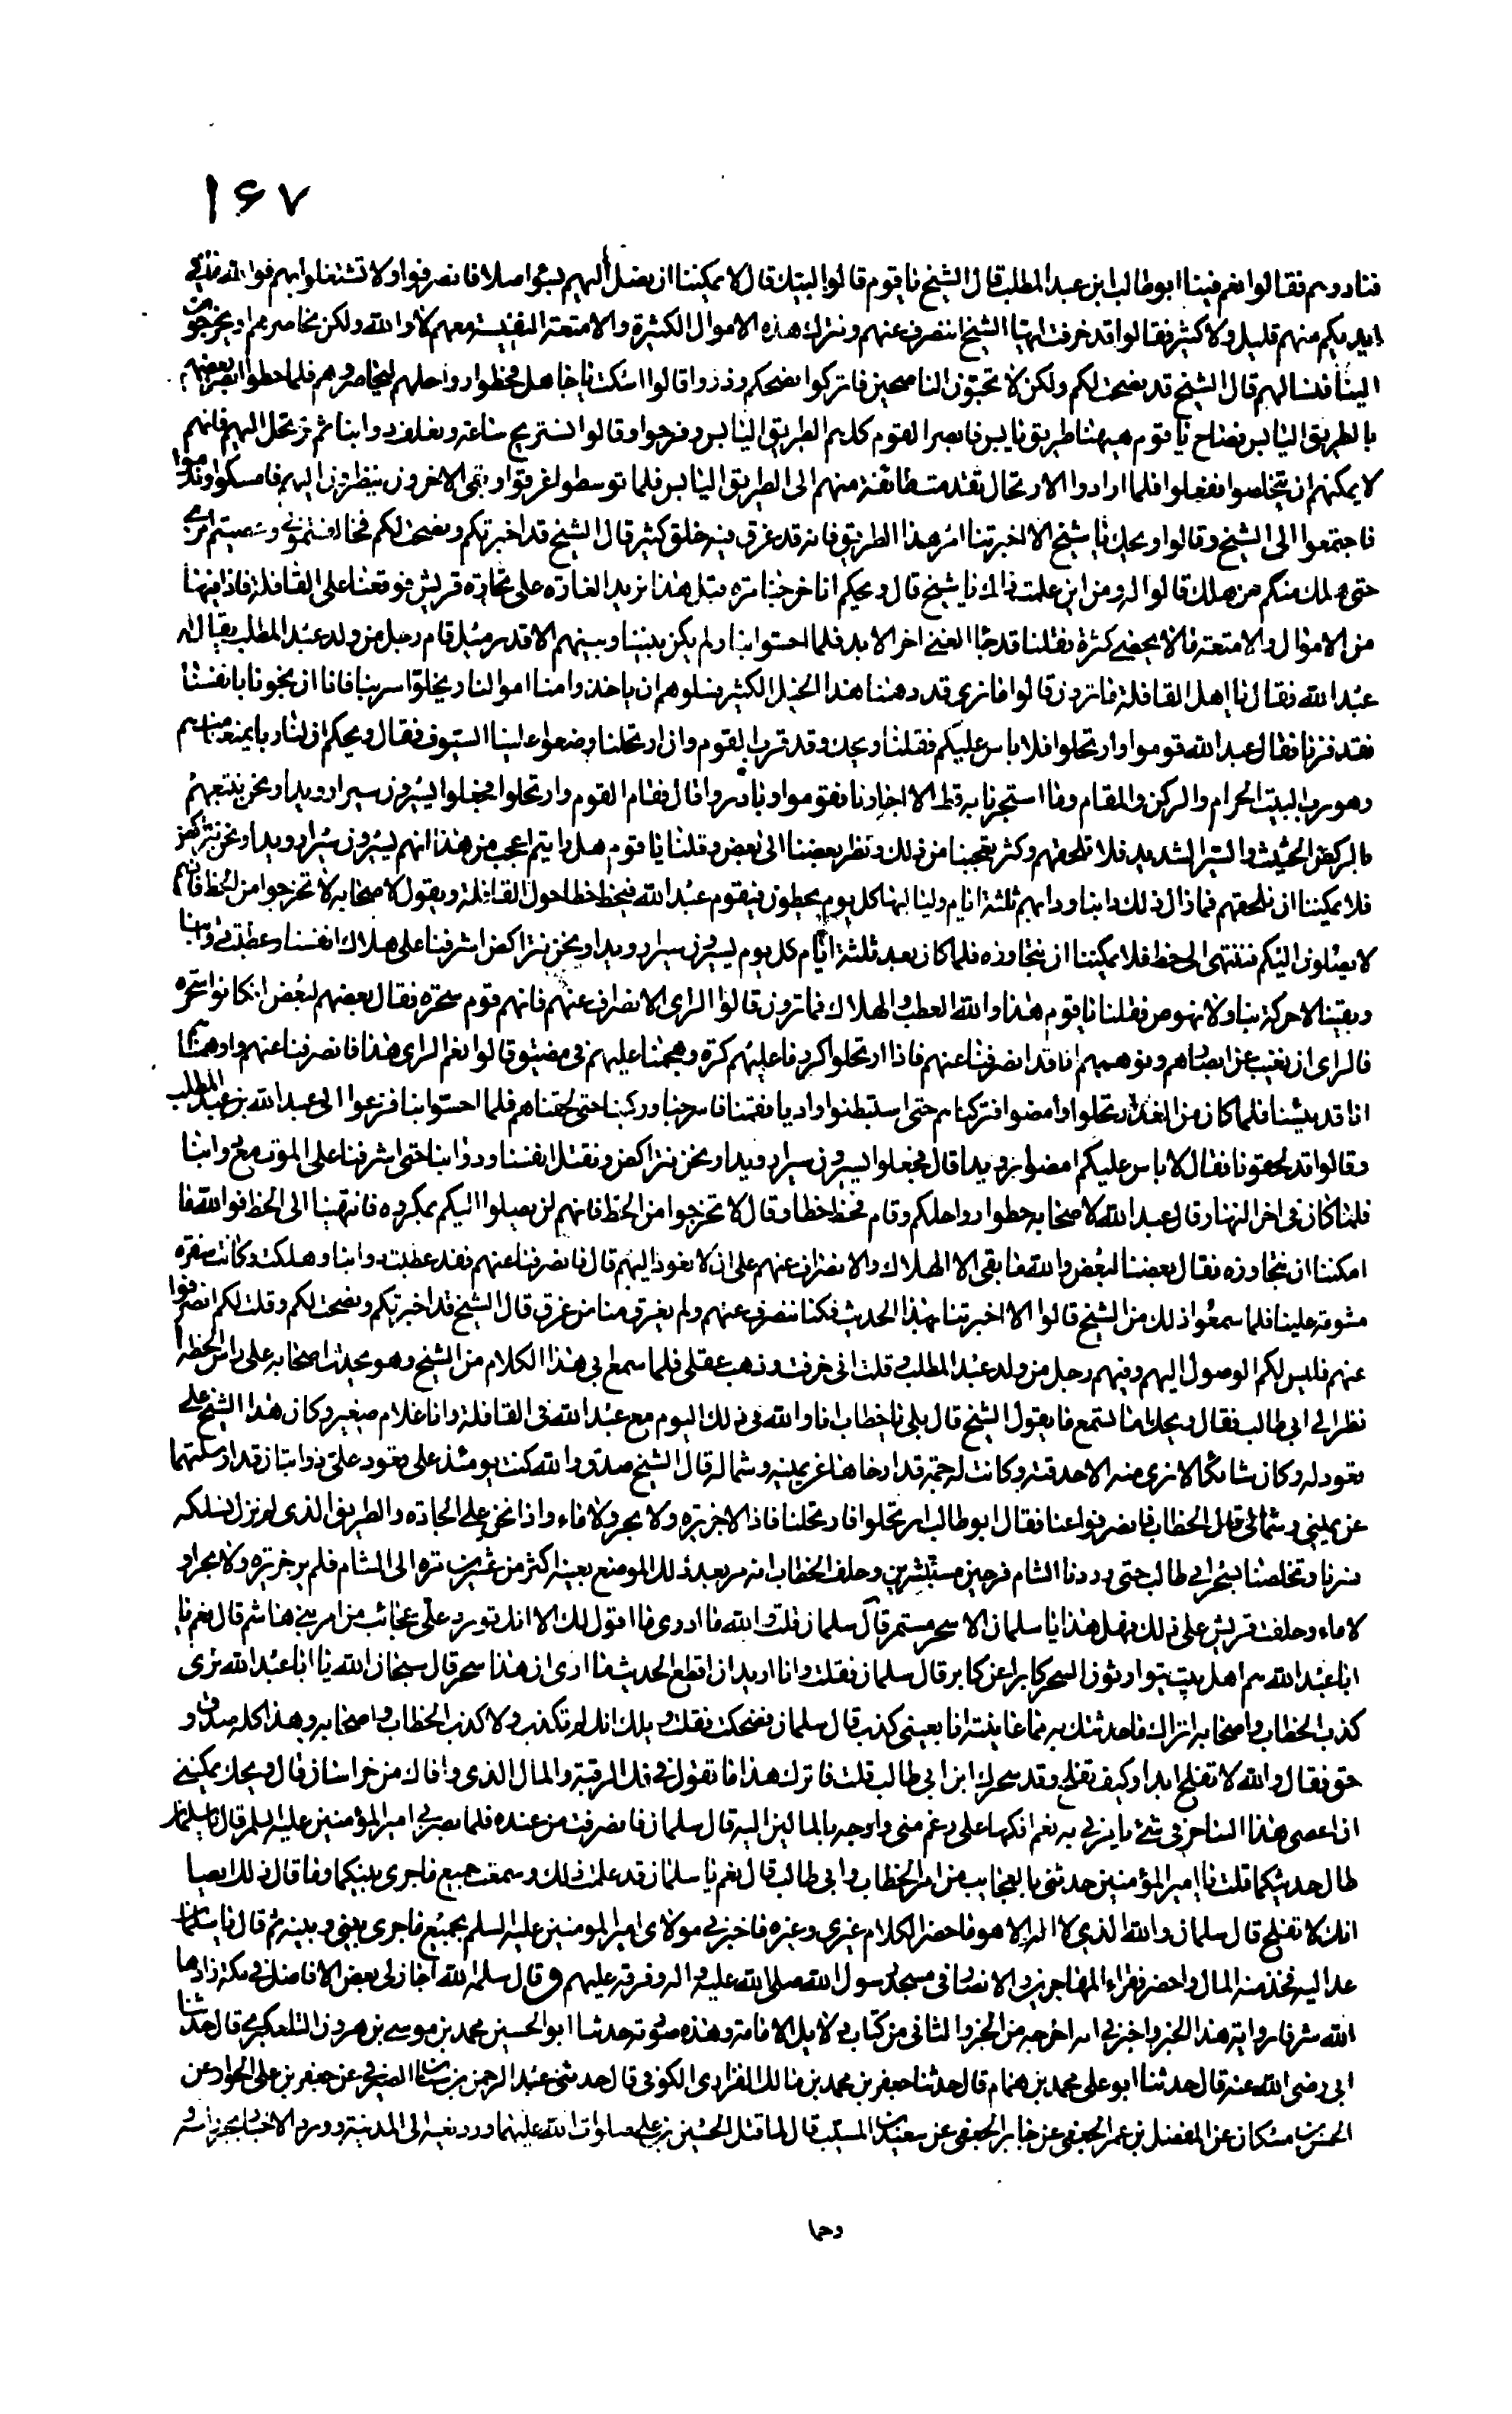 ۱۶۷
فنادوهم فقالوا نعم فينا ابو طالب ابن عبد المطلب قال الشيخ يا قوم قالوا لبيك قال لا يمكننا ان نصل اليهم بسوء اصلا فانصرفوا ولا تشتغلوا بهم فوالله ما في
ايديكم منهم قليل ولا كثير فقالوا قد خرفت ايها الشيخ اننصرف عنهم ونترك هذه الاموال الكثيرة والامتعة النفيسة معهم لا والله ولكن نحاصرهم او يخرجون
الينا فنسالهم قال الشيخ قد نصحت لكم ولكن لا تحبون الناصحين فاتركوا نصحكم وذروا قالوا اسكت يا جاهل فحطوا رواحلهم ليحاصروهم فلما حطوا ابصر بعضهم
بالطريق اليابس فصاح يا قوم هيهنا طريق يابس فابصر القوم كلهم الطريق اليابس وفرحوا وقالوا نستريح ساعة ونعلف دوابنا ثم نرتحل اليهم فانهم
لا يمكنهم ان يتخلصوا ففعلوا فلما ارادوا الارتحال تقدمت طائفة منهم الى الطريق اليابس فلما توسطوا غرقوا وبقى الاخرون ينظرون اليهم فامسكوا وندموا
فاجتمعوا الى الشيخ وقالوا ويحك يا شيخ الا اخبرتنا امر هذا الطريق فانه قد غرق فيه خلق كثير قال الشيخ قد اخبرتكم ونصحت لكم فخالفتموني وعصيتم امرى
حتى هلك منكم من هلك قالوا له ومن اين علمت ذاك يا شيخ قال ويحكم انا خرجنا مرة قبل هذا نريد الغارة على تجارة قريش فوقعنا على القافلة فاذا فيها
من الاموال والامتعة ما لا يحصى كثرة فقلنا قد جاء الغنى اخر الابد فلما احسوا بنا ولم يكن بيننا وبينهم الا قدر ميل قام رجل من ولد عبد المطلب يقال له
عبد الله فقال يا اهل القافلة ما ترون قالوا ما نرى قد دهمنا هذا الخيل الكثير فسلوهم ان ياخذوا منا اموالنا ويخلوا سربنا فانا ان نجونا بانفسنا
فقد فزنا فقال عبد الله قوموا وارتحلوا فلا باس عليكم فقلنا ويحك وقد قرب القوم وان ارتحلنا وضعوا علينا السيوف فقال ويحكم ان لنا ربا يمنعنا منهم
وهو رب البيت الحرام والركن والمقام وما استجرنا به قط الا اجارنا فقوموا وبادروا قال فقام القوم وارتحلوا فجعلوا يسيرون سيرا رويدا ونحن نتبعهم
بالركض الحثيث والسير الشديد فلا نلحقهم وكثر تعجبنا من ذلك ونظر بعضنا الى بعض وقلنا يا قوم هل رايتم اعجب من هذا انهم يسيرون سيرا رويدا ونحن نتراكض
فلا يمكننا ان نلحقهم فما زال ذلك دابنا ودابهم ثلثة ايام ولياليها كل يوم يحطون فيقوم عبد الله فيخط خطا حول القافلة ويقول لاصحابه لا تخرجوا من الخط فانهم
لا يصلون اليكم فننتهى الى الخط فلا يمكننا ان نتجاوزه فلما كان بعد ثلثة ايام كل يوم يسيرون سيرا رويدا ونحن نتراكض اشرفنا على هلاك انفسنا وعطبت دوابنا
وبقينا لا حركة بنا ولا نهوض فقلنا يا قوم هذا والله العطب والهلاك فما ترون قالوا الراى الانصراف عنهم فانهم قوم سحرة فقال بعضهم لبعض ان كانوا سحرة
فالراى ان نغيب عن ابصارهم ونوهمهم انا قد انصرفنا عنهم فاذا ارتحلوا كررنا عليهم كرة وهجمنا عليهم في مضيق قالوا نعم الراى هذا فانصرفنا عنهم واوهمنا
انا قد يئسنا فلما كان من الغد ارتحلوا ومضوا فتركناهم حتى استبطنوا واديا فقمنا فاسرجنا وركبنا حتى لحقناهم فلما احسوا بنا فزعوا الى عبد الله بن عبد المطلب
وقالوا قد لحقونا فقال لا باس عليكم امضوا رويدا قال فجعلوا يسيرون سيرا رويدا ونحن نتراكض ونقتل انفسنا ودوابنا حتى اشرفنا على الموت مع دوابنا
فلما كان في اخر النهار قال عبد الله لاصحابه حطوا رواحلكم وقام فخط خطا وقال لا تخرجوا من الخط فانهم لن يصلوا اليكم بمكروه فانتهينا الى الخط فوالله ما
امكننا ان نتجاوزه فقال بعضنا لبعض والله ما بقى الا الهلاك والانصراف عنهم على ان لا نعود اليهم قال فانصرفنا عنهم فقد عطبت دوابنا وهلكت وكانت سفرة
مشومة علينا فلما سمعوا ذلك من الشيخ قالوا الا اخبرتنا بهذا الحديث فكنا ننصرف عنهم ولم يغرق منا من غرق قال الشيخ قد اخبرتكم ونصحت لكم وقلت لكم انصرفوا
عنهم فليس لكم الوصول اليهم وفيهم رجل من ولد عبد المطلب وقلت انى خرفت وذهب عقلى فلما سمع ابى هذا الكلام من الشيخ وهو يحدث اصحابه على راس الخطة
نظر الى ابى طالب فقال ويحك اما تسمع ما يقول الشيخ قال بلى يا خطاب انا والله فى ذلك اليوم مع عبد الله فى القافلة وانا غلام صغير وكان هذا الشيخ على
قعود له وكان شائكا لا نرى منه الا حدقته وكانت له جمة قد ارخاها عن يمينه وشماله قال الشيخ صدق والله كنت يومئذ على قعود على ذوابتان قد ارسلتهما
عن يمينى وشمالى قال الخطاب فانصرفوا عنا فقال ابو طالب ارتحلوا فارتحلنا فاذا لا جزيرة ولا بحر ولا ماء واذا نحن على الجادة والطريق الذى لم نزل نسلكه
فسرنا وتخلصنا بسحر ابى طالب حتى وردنا الشام فرحين مستبشرين وحلف الخطاب انه مر بعد ذلك الموضع بعينه اكثر من عشرين مرة الى الشام فلم ير جزيرة ولا بحرا و
لا ماء وحلفت قريش على ذلك فهل هذا يا سلمان الا سحر مستمر قال سلمان قلت والله ما ادرى ما اقول لك الا انك تورد على عجائب من امر بنى هاشم قال نعم يا
ابا عبد الله هم اهل بيت يتوارثون السحر كابرا عن كابر قال سلمان فقلت وانا اريد ان اقطع الحديث ما ارى ان هذا سحر قال سبحان الله يا ابا عبد الله ترى
كذب الخطاب واصحابه اتراك ما حدثتك به مما عاينته انا بعينى كذب قال سلمان فضحكت فقلت ويلك انك لم تكذب ولا كذب الخطاب واصحابه وهذا كله صدق و
حق فقال والله لا تفلح ابدا وكيف تفلح وقد سحرك ابن ابى طالب قلت فاترك هذا ما تقول في فك الرقبة والمال الذى وافاك من خراسان قال ويحك يمكننى
ان اعصى هذا الساحر فى شئ يامرنى به نعم افكها على رغم منى واوجه بالمال اليه قال سلمان فانصرفت من عنده فلما بصر بى امير المؤمنين عليه السلم قال يا سلمان
طال حديثكما قلت يا امير المؤمنين حدثنى بالعجايب من امر الخطاب وابى طالب قال نعم يا سلمان قد علمت ذلك وسمعت جميع ما جرى بينكما وما قال لك ايضا
انك لا تفلح قال سلمان والله الذى لا اله الا هو ما حضر الكلام غيرى وغيره فاخبرنى مولاى امير المومنين عليه السلم بجميع ما جرى بينى وبينه ثم قال يا سلمان
عد اليه فخذ منه المال واحضر فقراء المهاجرين والانصار فى مسجد رسول الله صلى الله عليه واله وفرقه عليهم و قال سلمه الله اجاز لى بعض الافاضل فى مكة زادها
الله شرفا رواية هذا الخبر واخبرنى انه اخرجه من الجزء الثانى من كتاب دلايل الامامة وهذه صورته حدثنا ابو الحسين محمد بن موسى بن هرون التلعكبرى قال حدثنا
ابى رضى الله عنه قال حدثنا ابو على محمد بن همام قال حدثنا جعفر بن محمد بن مالك الفزارى الكوفى قال حدثنى عبد الرحمن بن سنان الصيرفى عن جعفر بن على الحوار عن
الحسن بن مسكان عن المفضل بن عمر الجعفى عن جابر الجعفى عن سعيد بن المسيب قال لما قتل الحسين بن على صلوات الله عليهما وورد نعيه الى المدينة وورد الاخبار بجز راسه
وحما